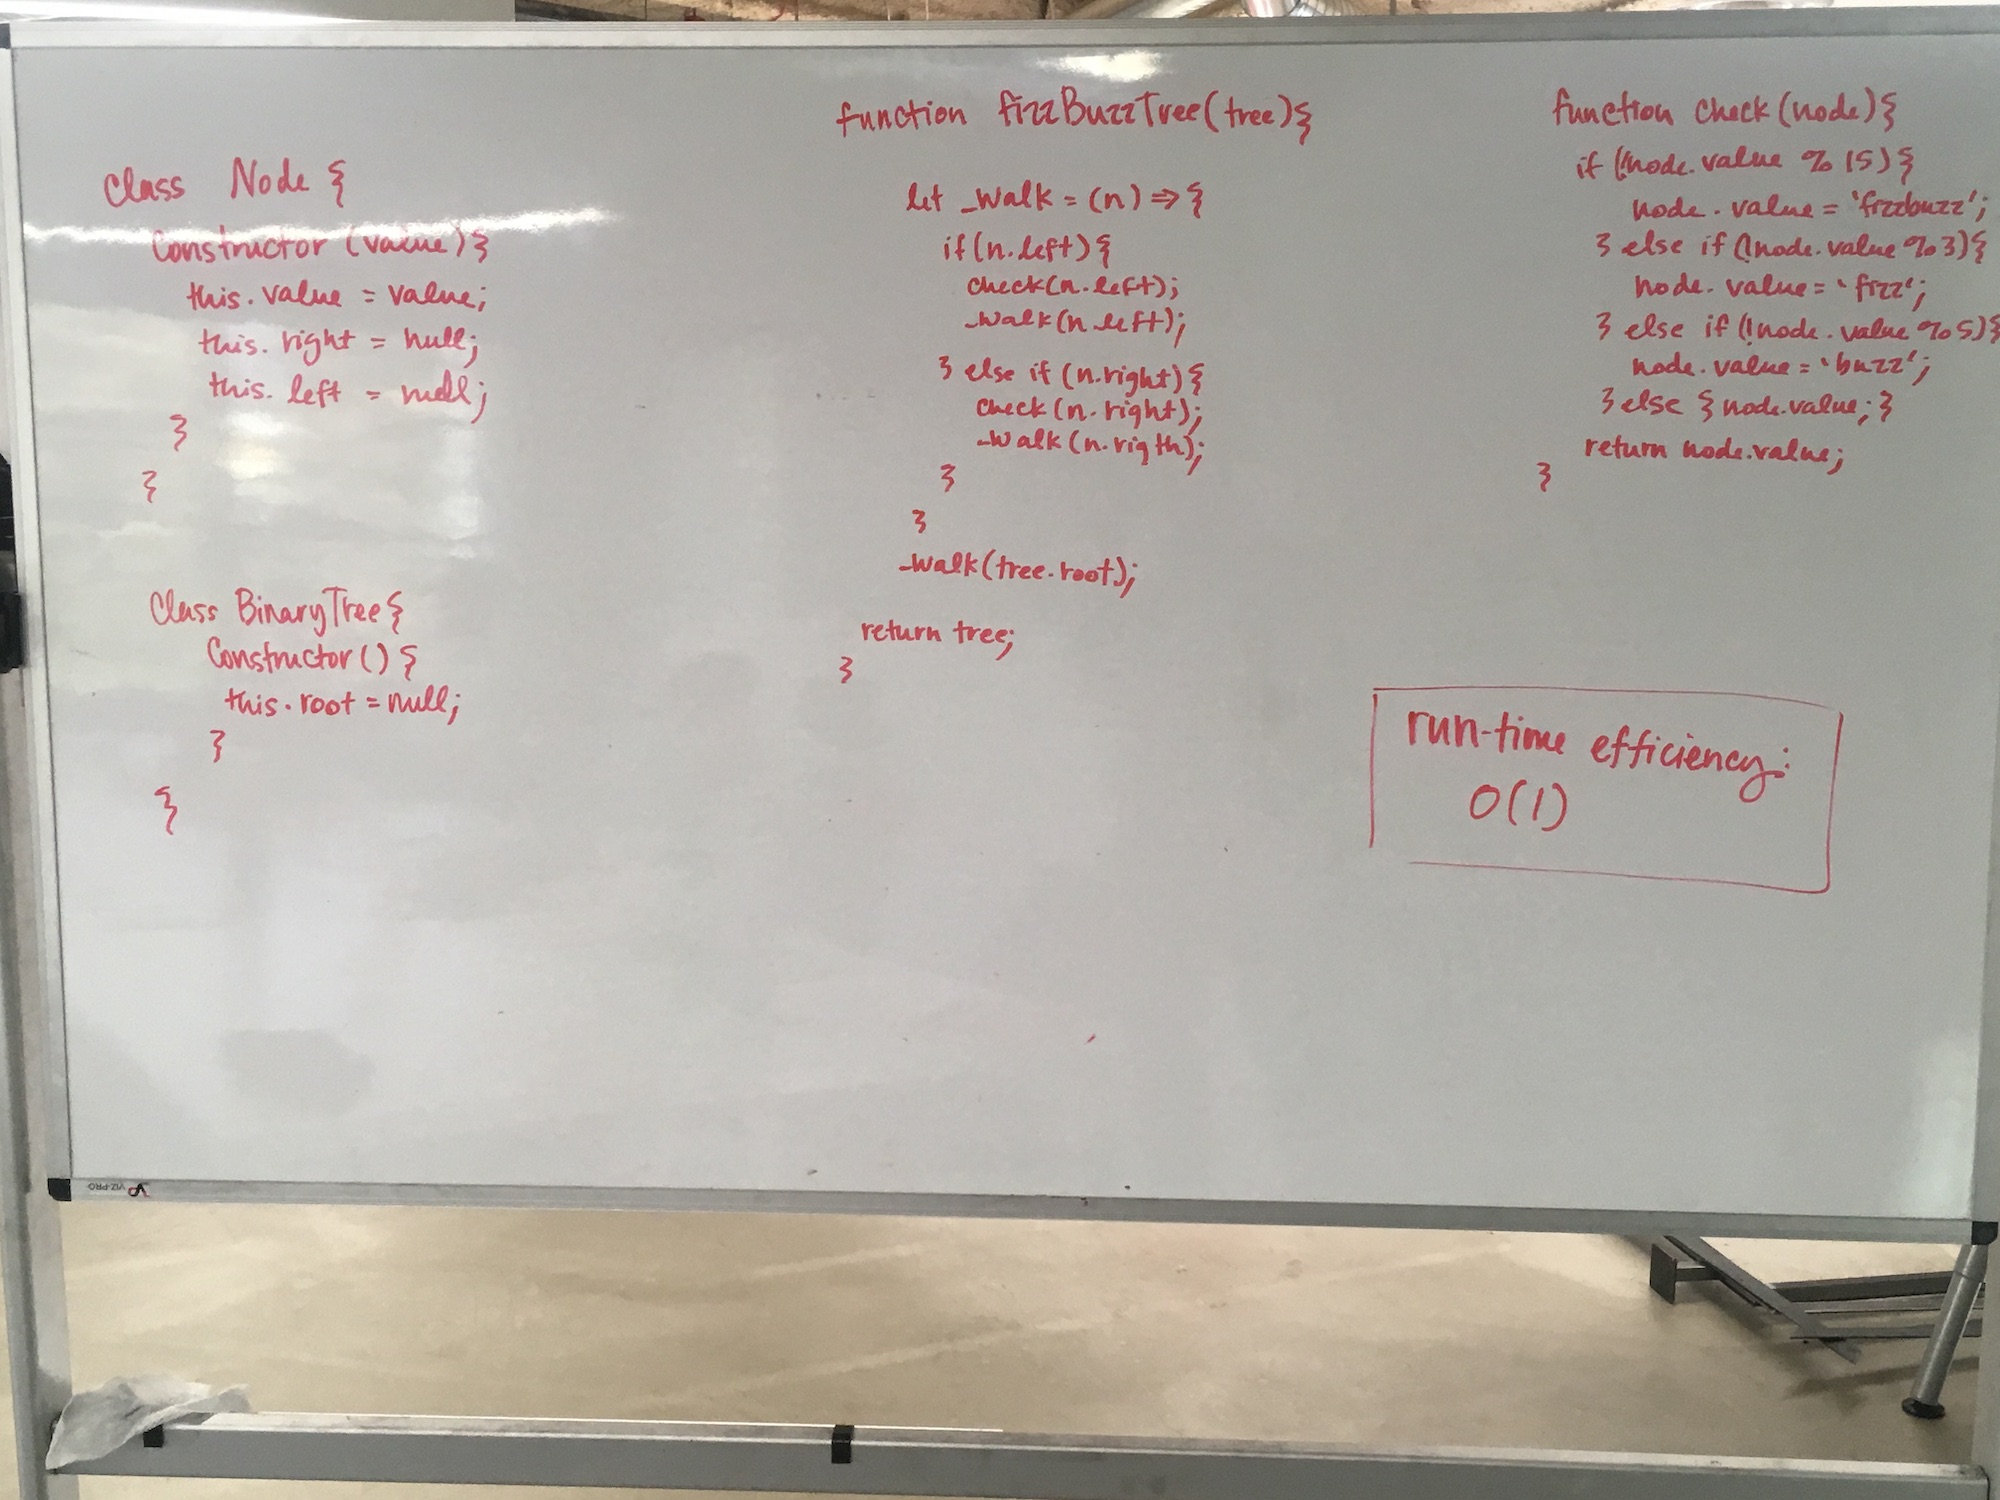 class Node {
Constructor (value) {
this.value = value;
this.right = null;
this.left = null;
}
}
Class BinaryTree {
Constructor () {
this.root = null;
}
}
function fizzBuzzTree(tree) {
let _walk = (n) => {
if (n.left) {
check(n.left);
_walk(n.left);
} else if (n.right) {
check(n.right);
_walk(n.rigth);
}
}
_walk(tree.root);
return tree;
}
function check (node) {
if (!node.value % 15) {
node.value = 'fizzbuzz';
} else if (!node.value % 3) {
node.value = 'fizz';
} else if (!node.value % 5) {
node.value = 'buzz';
} else { node.value; }
return node.value;
}
run-time efficiency:
O(1)
VIZ-PRO